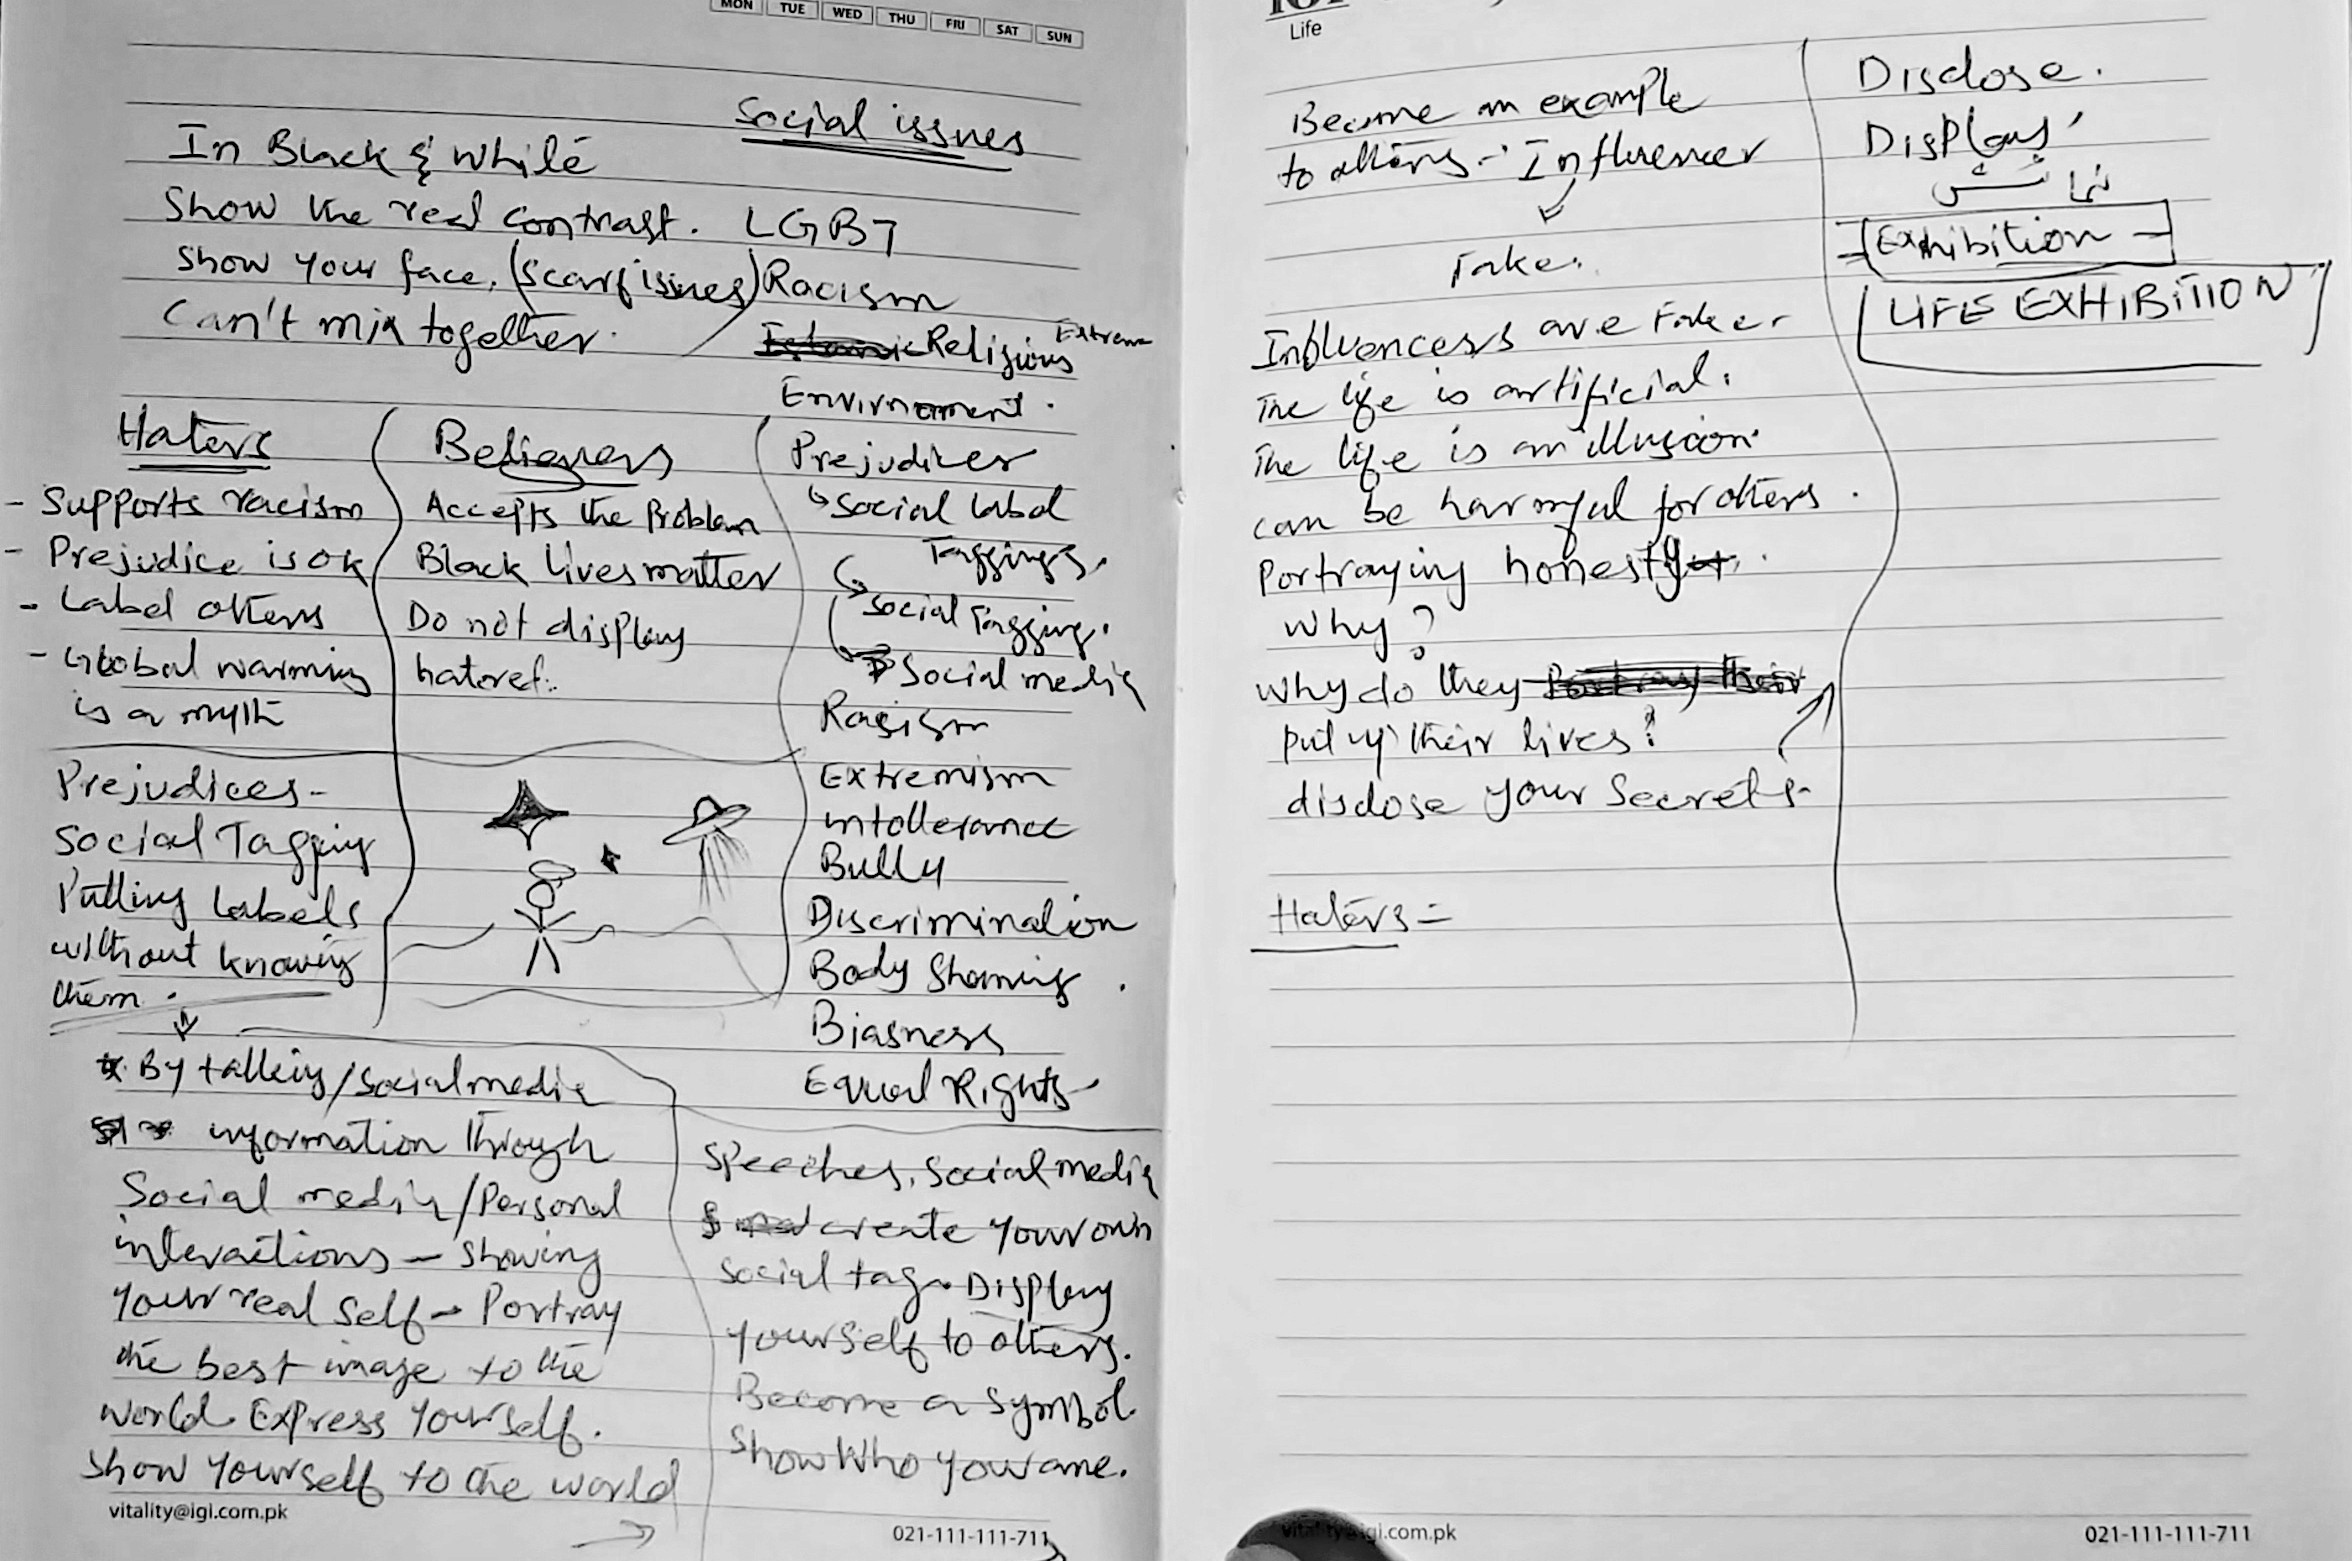 MON TUE WED THU FRI SAT SUN
Social issues
In Black & White
Show the real contrast.
Show your face, (Scarf issues)
Can't mix together.
LGBT
Racism
Religious Extreme
Envirnoment.
Prejudices
↳ Social Label
Taggings.
Social Tagging.
Social media
Racism
Extremism
intollerance
Bully
Discrimination
Body Shaming.
Biasness
Equal Rights
Haters
- Supports racism
- Prejudice is ok
- Label others
- Global warming
is a myth
Believers
Accepts the Problem
Black lives matter
Do not display
hatoref.
Prejudices-
Social Tagging
Putting Labels
without knowing
them.
* By talking/Social media
information through
Social media/Personal
interactions - Showing
Your real self - Portray
the best image to the
world. Express Yourself.
Show Yourself to the world
Speeches, Social media
create your own
Social tag. Display
yourself to others.
Become a Symbol.
Show Who you are.
vitality@igi.com.pk
021-111-111-711
Life
Become an example
to others - Influencer
Fake.
Influencers are Fake.
The life is artificial.
The life is an illusion
can be harmful for others.
Portraying honesty.
Why?
Why do they Portray their
put up their lives?
disclose your Secrets.
Haters =
Disclose.
Display
نمائش
Exhibition
LIFE EXHIBITION
vitality@igi.com.pk
021-111-111-711